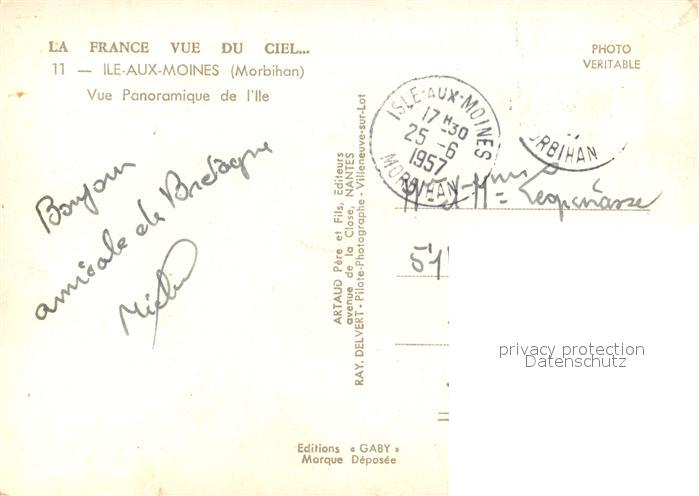 LA FRANCE VUE DU CIEL...
11 — ILE-AUX-MOINES (Morbihan)
Vue Panoramique de l'Ile
PHOTO
VERITABLE
ISLE-AUX-MOINES
17 H 30
25 - 6
1957
MORBIHAN
ORBIHAN
Bonjour
amicale de Bretagne
51
ARTAUD Père et Fils, Editeurs
avenue de la Close, NANTES
RAY. DELVERT - Pilote-Photographe - Villeneuve-sur-Lot
privacy protection
Datenschutz
Editions « GABY »
Marque Déposée